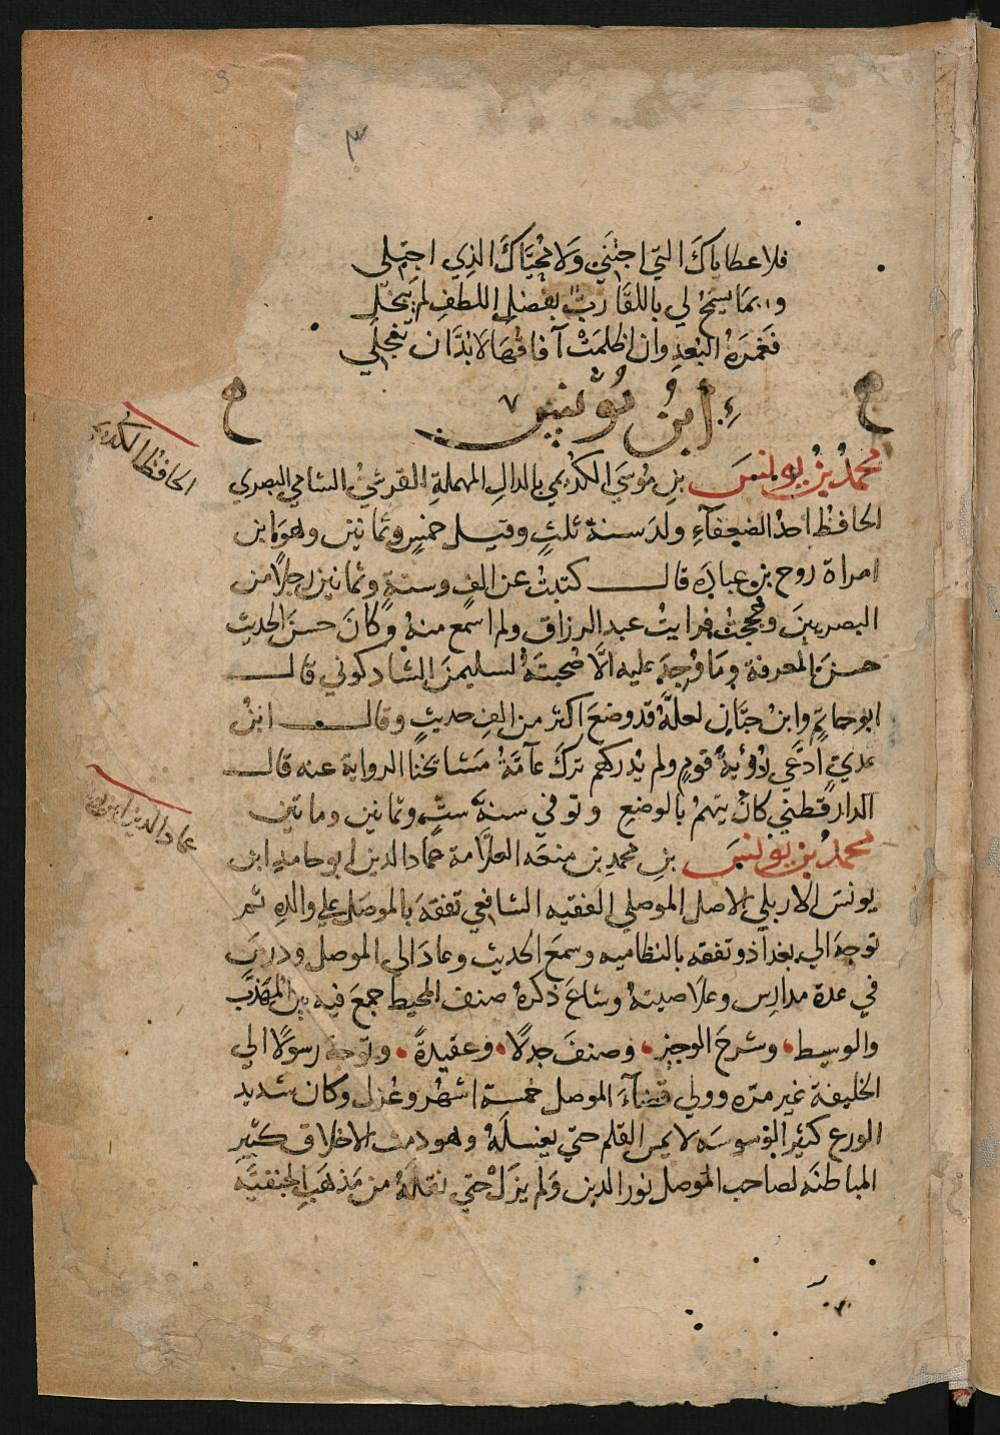 ٣
فلا عطاياك التي اجتني ولا محياك الذي اجتلي
وربما يسمح لي باللقا رب بفضل اللطف لم يبخل
فغمرة البعد وان اظلمت آفاقها لا بد ان تنجلي
ابن يونس
محمد بن يونس بن موسى الكديمي بالدال المهملة القرشي السامي البصري
الحافظ احد الضعفآء ولد سنة ثلث وقيل خمس وثمانين وهو ابن
امراة روح بن عبادة قال كتبت عن الف وستة وثمانين رجلا من
البصريين وحججت فرايت عبد الرزاق ولم اسمع منه وكان حسن الحديث
حسن المعرفة وما وجد عليه الا صحبته لسليمن الشاذكوني قال
ابو حاتم وابن حبان لعله قد وضع اكثر من الف حديث وقال ابن
عدي ادعي رؤية قوم ولم يدركهم ترك عآمة مشايخنا الرواية عنه قال
الدارقطني كان يتهم بالوضع وتوفي سنة ست وثمانين وماتين
محمد بن يونس بن محمد بن منعه العلامة عماد الدين ابو حامد ابن
يونس الاربلي الاصل الموصلي الفقيه الشافعي تفقه بالموصل علي والده ثم
توجه الي بغداذ وتفقه بالنظاميه وسمع الحديث وعاد الي الموصل ودرس
في عدة مدارس وعلا صيته وشاع ذكره صنف المحيط جمع فيه بين المهذب
والوسيط وشرح الوجيز وصنف جدلا وعقيدة وتوجه رسولا الي
الخليفة غير مره وولي قضآء الموصل خمسة اشهر وعزل وكان شديد
الورع كثير الوسوسه لا يمس القلم حتي يغسله وهو دمث الاخلاق كثير
المباطنه لصاحب الموصل نور الدين ولم يزل حتي نقله من مذهب الحنفية
الحافظ الكديمي
عماد الدين ابن يونس